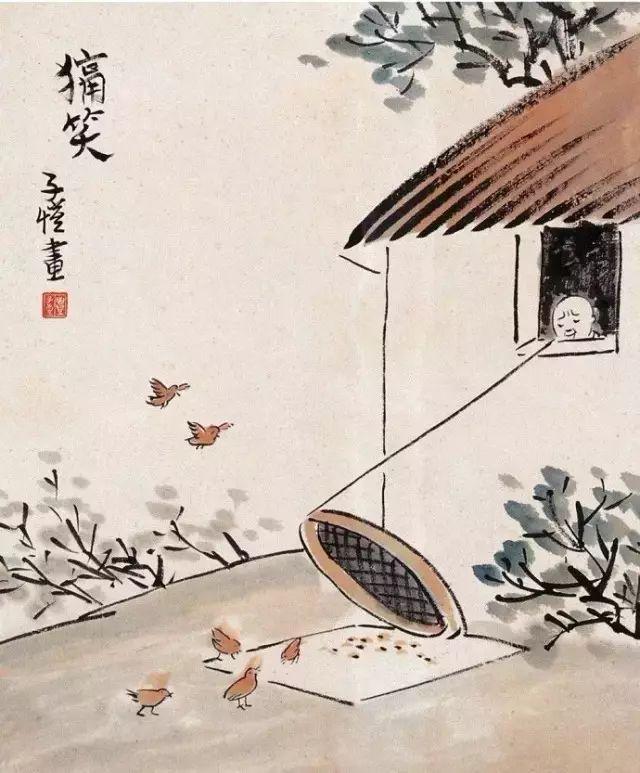 獰笑
子愷畫